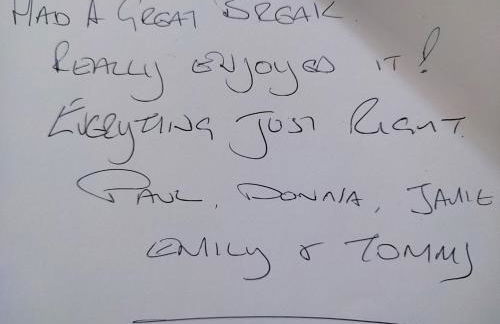 HAD A GREAT BREAK.
REALLY ENJOYED IT!
EVERYTHING JUST RIGHT.
PAUL, DONNA, JAMIE
EMILY & TOMMY